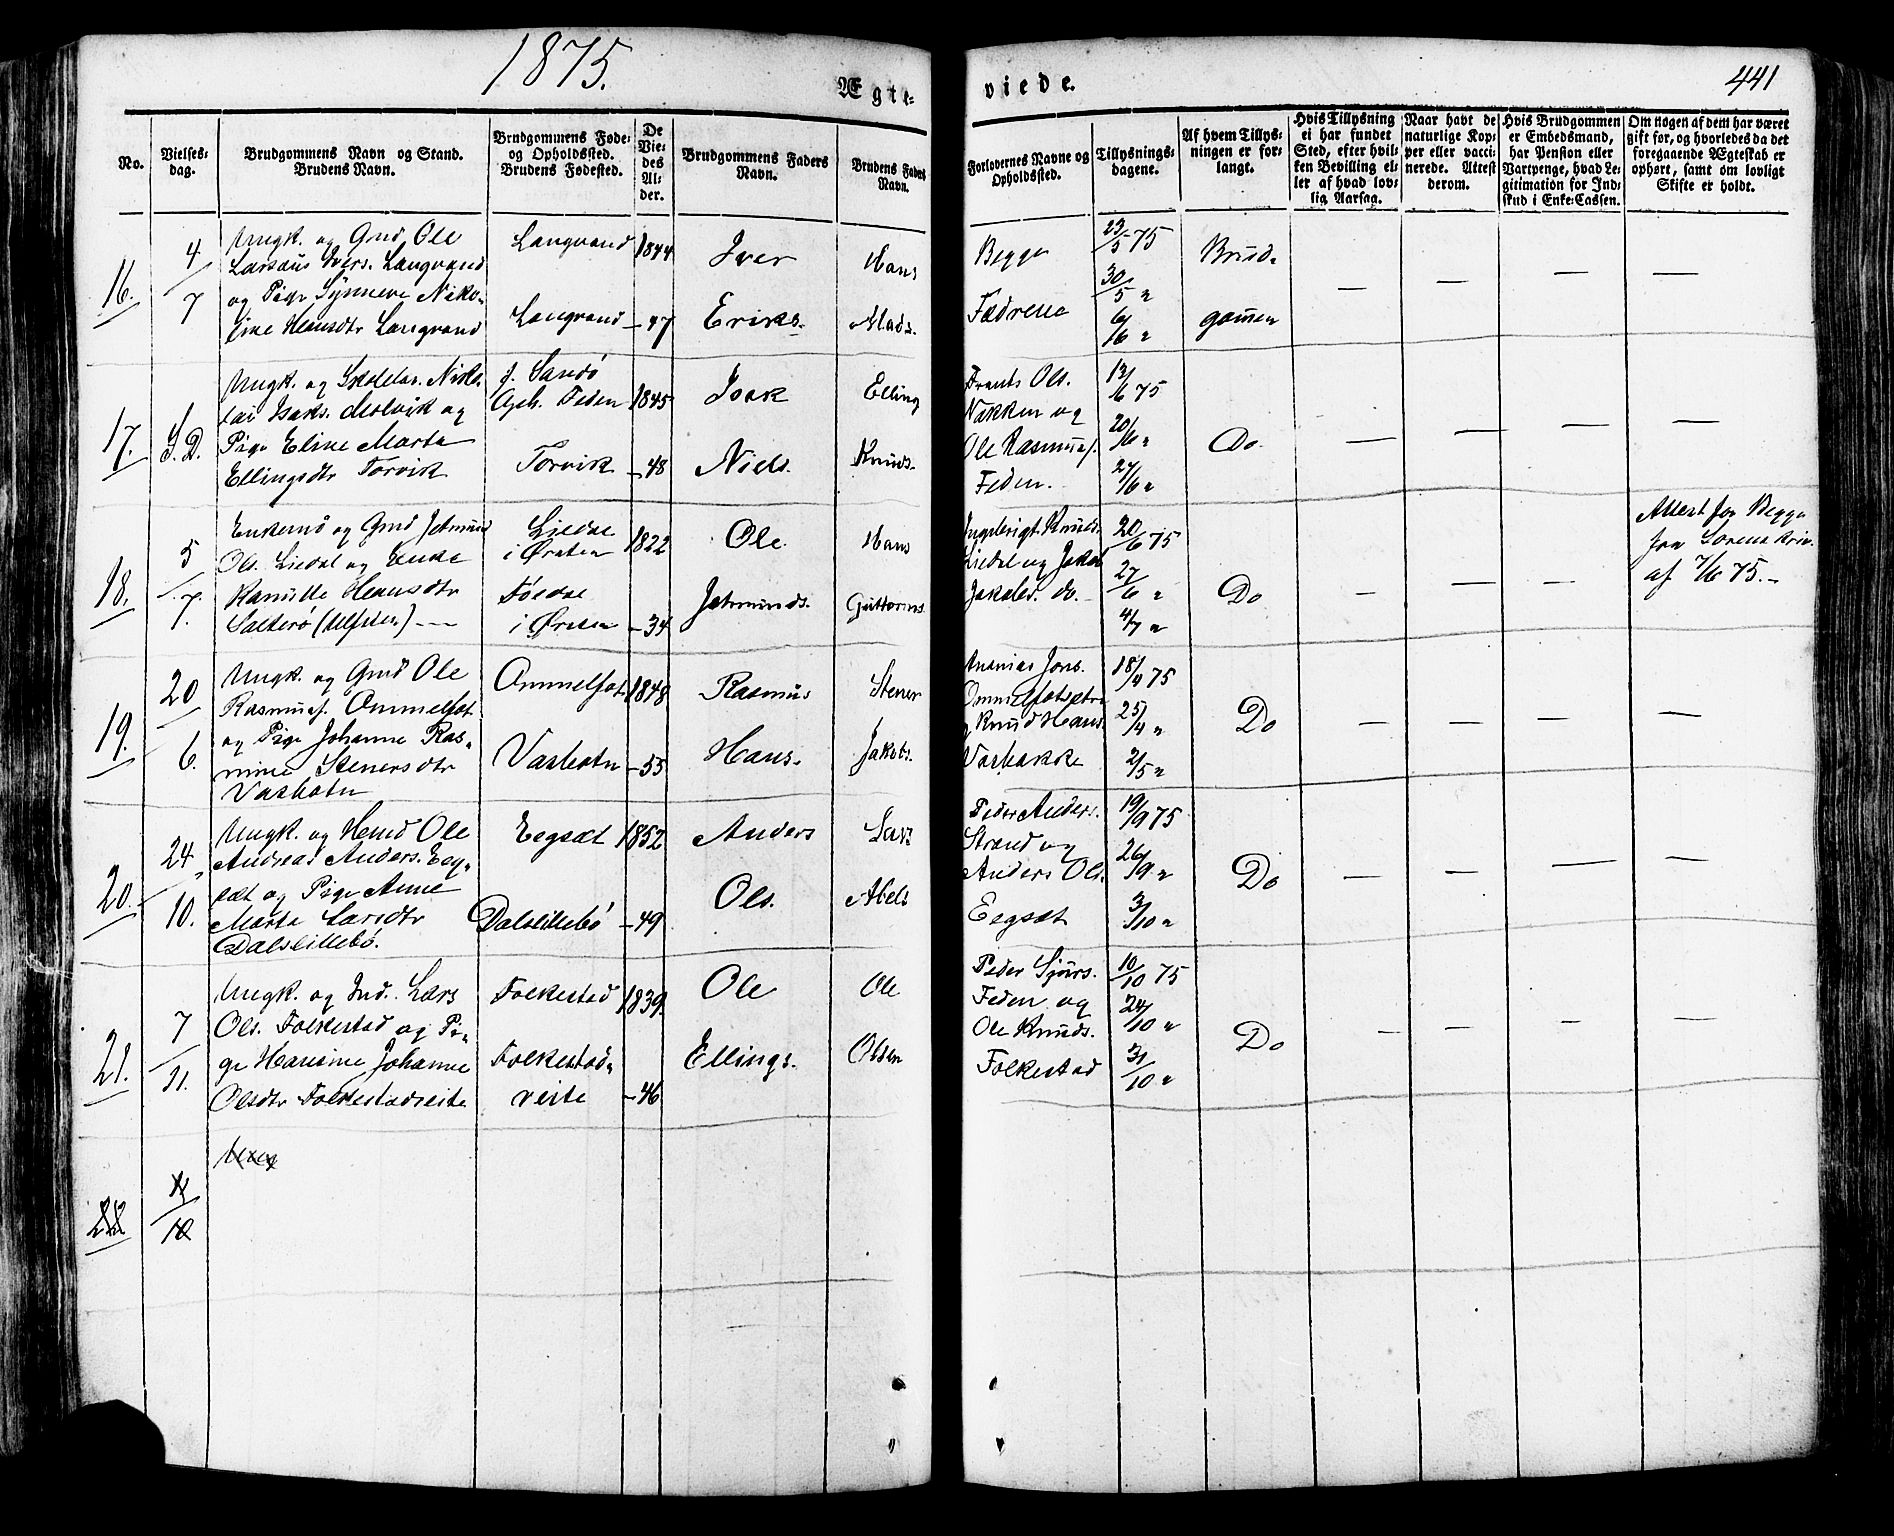 1875.
Ægte-
viede.
441
No.
Vielses-
dag.
Brudgommens Navn og Stand.
Brudens Navn.
Brudgommens Føde-
og Opholdssted.
Brudens Fødested.
De
Vie-
des
Al-
der.
Brudgommens Faders
Navn.
Brudens Faders
Navn.
Forlovernes Navne og
Opholdssted.
Tillysnings-
dagene.
Af hvem Tillys-
ningen er for-
langt.
Hvis Tillysning
ei har fundet
Sted, efter hvil-
ken Bevilling el-
ler af hvad lov-
lig Aarsag.
Naar havt de
naturlige Kop-
per eller vacci-
nerede. Attest
derom.
Hvis Brudgommen
er Embedsmand,
har Pension eller
Vartpenge, hvad Le-
gitimation for Ind-
skud i Enke-Cassen.
Om nogen af dem har været
gift før, og hvorledes da det
foregaaende Ægteskab er
ophørt, samt om lovligt
Skifte er holdt.
16.
4/7
Ungk. og Gmd Ole
Larsaus Ivers. Langvand
og Pige Synneve Niko-
line Hansdtr Langvand
Langvand
Langvand
1844
-47
Iver
Eriks.
Hans
Mads.
Begge
Fædrene
23/5 75
30/5 "
6/6 "
Brud-
gommen
— — — —
17.
S.D.
Ungk. og Skolelær. Niko-
lai Isaks. Molvik og
Pige Eline Marta
Ellingsdtr Torvik
f. Sandø
Oph. Feden
Torvik
1845
-48
Isak
Niels.
Elling
Knuds.
Frants Ols.
Nakken og
Ole Rasmusf.
Feden.
13/6 75
20/6 "
27/6 "
Do.
— — — —
18.
5/7.
Enkemd og Gmd Jetmund
Ols. Liedal og Enke
Ranille Hansdtr
Sæterø (Ulfsten)
Liedal
i Ørsten
Føedal
i Ørsten
1822
-34
Ole
Jetmunds.
Hans
Guttorms.
Ingebrigt Knuds.
Liedal og Jakob
Jakobs. do.
20/6 75
27/6 "
4/7 "
Do
— — —
Attest for Begge
fra Sorenskriv.
af 7/6 75.-
19.
20/6.
Ungk. og Gmd Ole
Rasmusf. Ommelfot
og Pige Johanne Ras-
mine Stenersdtr
Vasbotn
Ommelfot
Vasbotn
1848
-55
Rasmus
Hans.
Stener
Jakobs.
Ananias Jons.
Ommelfotsætre
og Knud Hans.
Vasbakke
18/4 75
25/4 "
2/5 "
Do
— — — —
20.
24/10.
Ungk. og Hmd Ole
Andreas Anders. Eeg-
sæt og Pige Anne
Marta Larsdtr
Dalslillebø.
Eegsæt
Dalslillebø
1852
-49
Anders
Ols.
Lars
Abels
Peder Anders.
Strand og
Anders Ols.
Eegsæt
19/9 75
26/9 "
3/10 "
Do
— — — —
21.
7/11.
Ungk. og Ind. Lars
Ols. Folkestad og Pi-
ge Hansine Johanne
Olsdtr Folkestadreite
Folkestad
Folkestad-
reite
1839
-46
Ole
Ellings.
Ole
Olsen
Peder Sjurs.
Feden og
Ole Knuds.
Folkestad
10/10 75
24/10 "
31/10 "
Do
— — — —
22
Ung